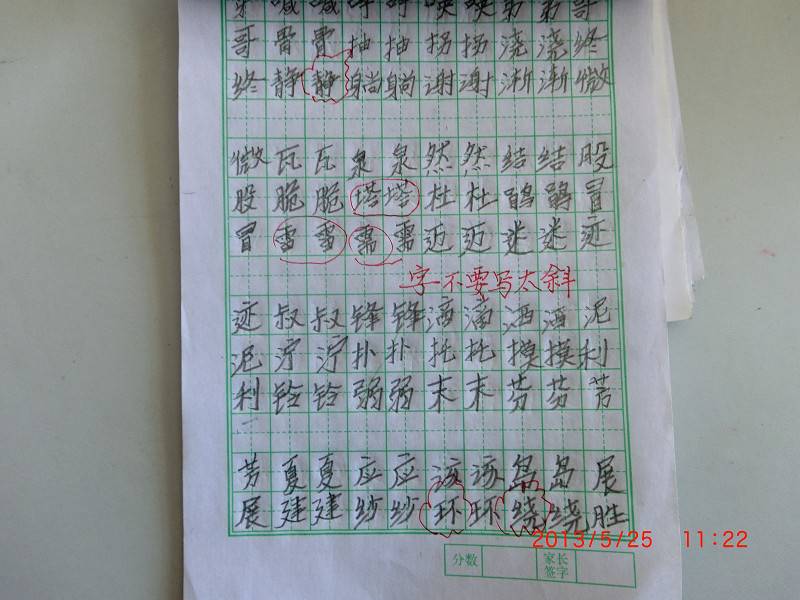 哥骨骨抽抽拐拐浇浇终
终静静躺躺谢谢渐渐微
微瓦瓦泉泉然然结结股
股脆脆塔塔杜杜鹃鹃冒
冒雷雷需需迈迈迷迷迹
字不要写太斜
迹叔叔锋锋滴滴洒洒泥
泥泞泞扑扑托托摸摸利
利铃铃弱弱末末芬芬芳
芳夏夏应应该该岛岛展
展建建纱纱环环绕绕胜
2013/5/25 11:22
分数
家长
签字